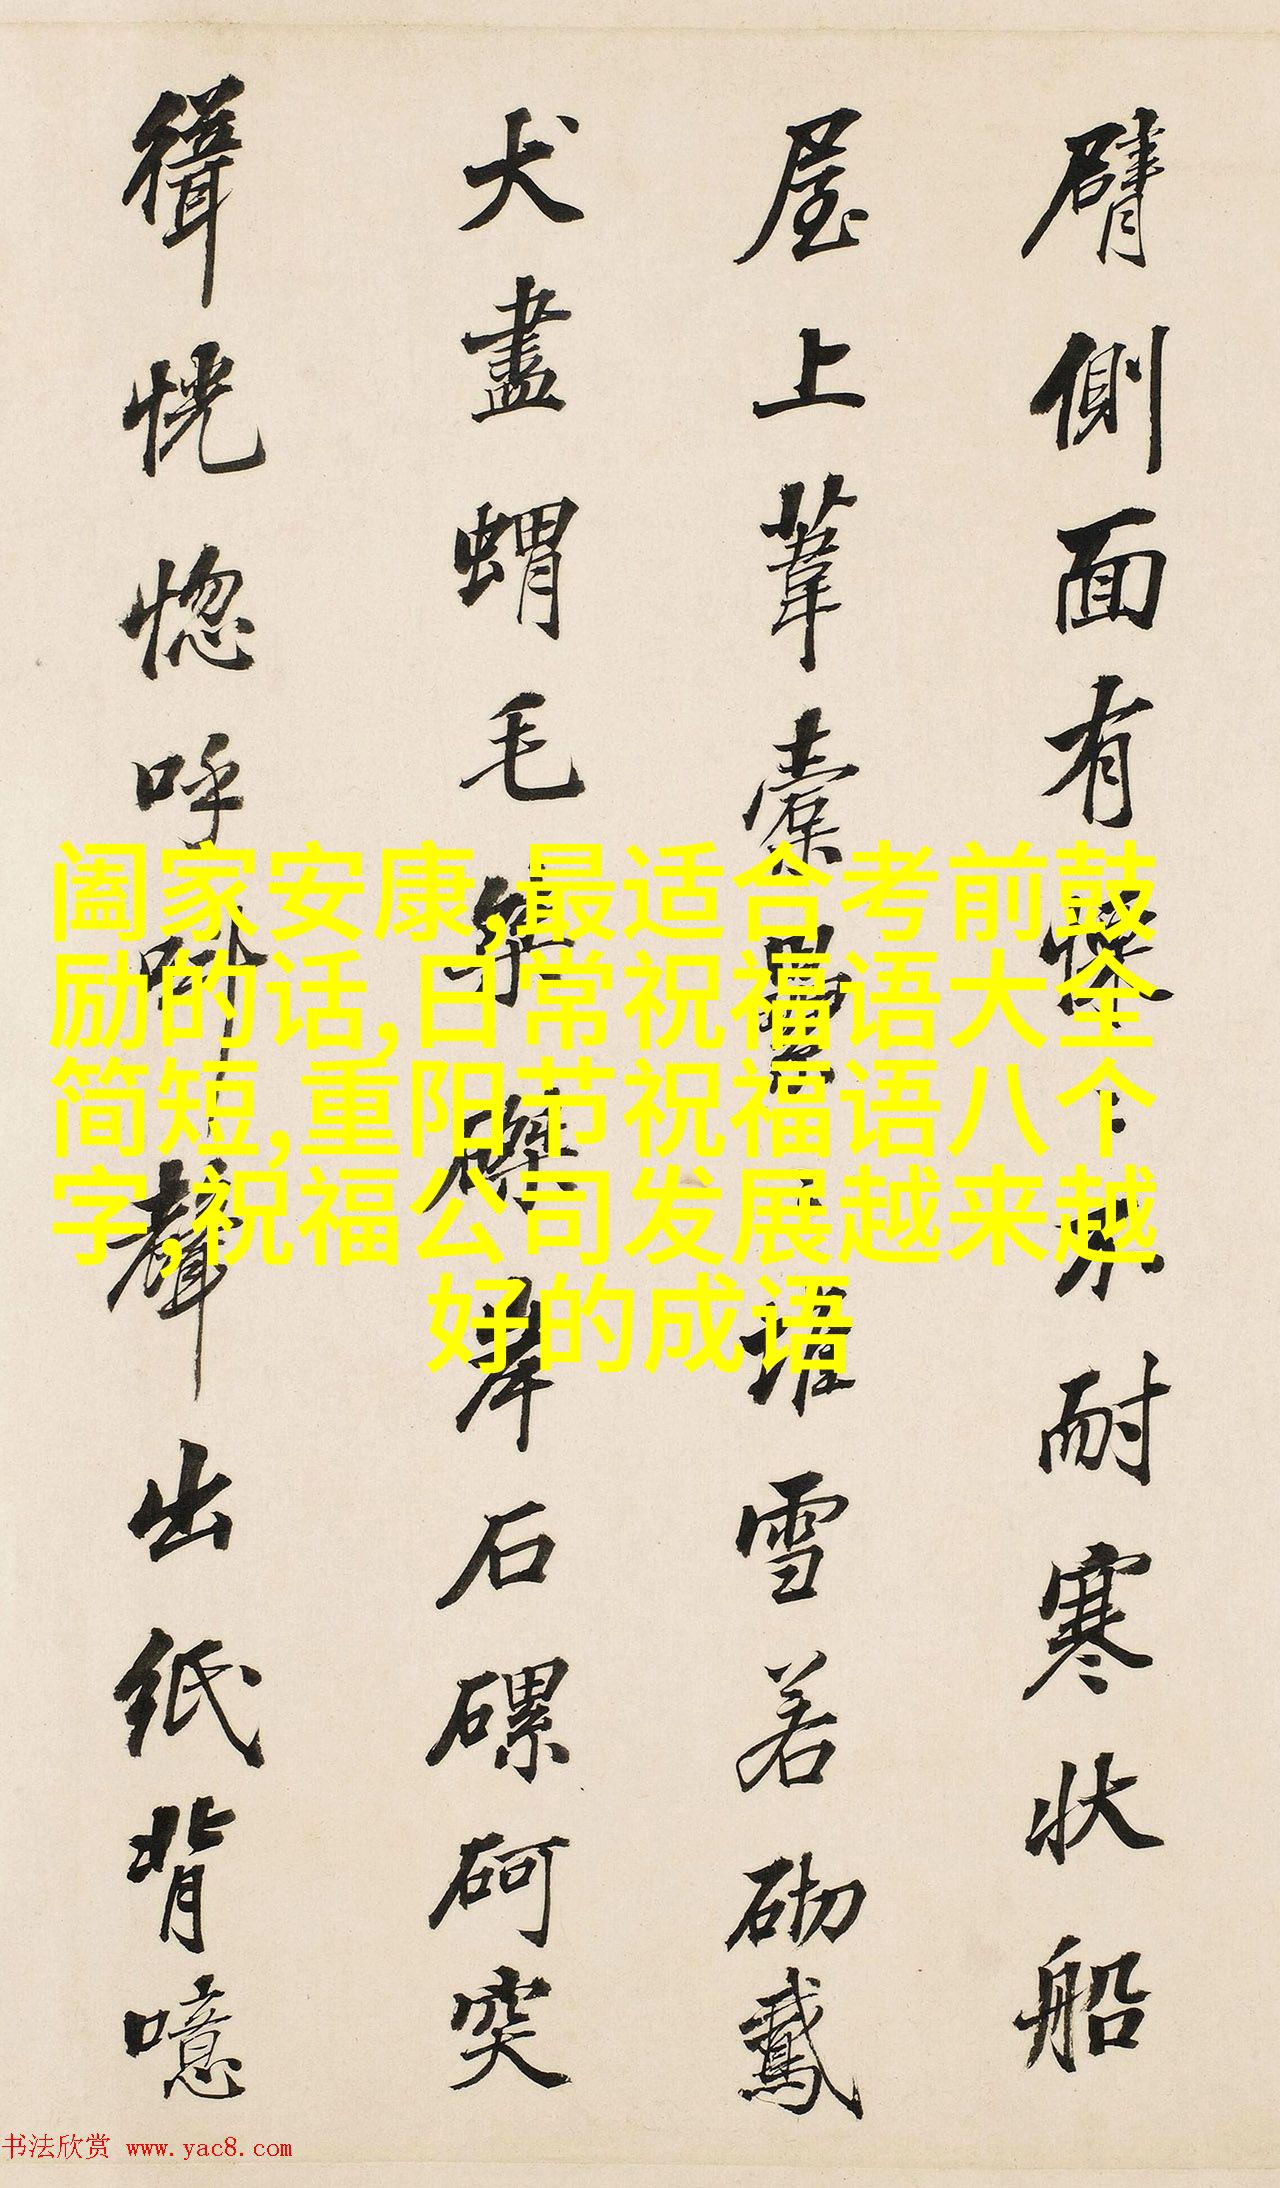 臂側面有不耐寒状船
屋上葦堆雪若砌鵞
犬盡蝟毛磔石磥砢突
恍惚呼聲出紙背噫
阖家安康,最适合考前鼓
励的话,日常祝福语大全
简短,重阳节祝福语八个
字,祝福公司发展越来越
好的成语
书法欣赏 www.yac8.com